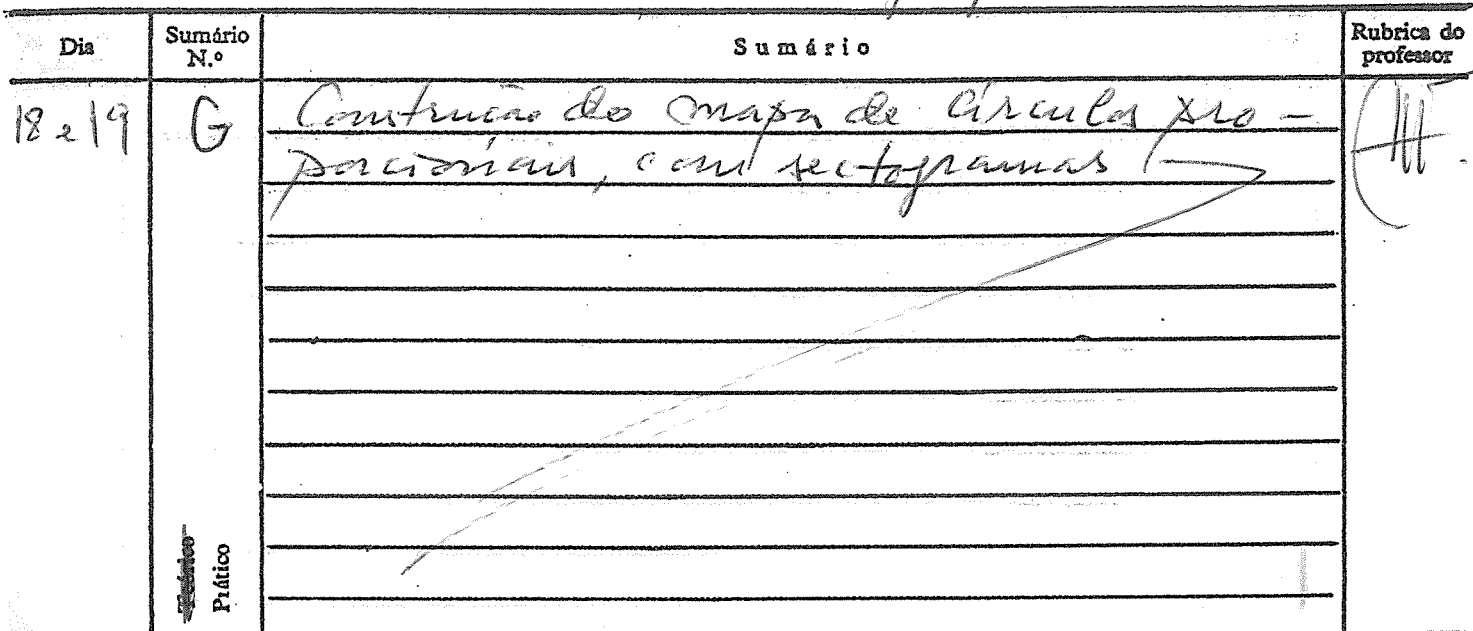 Dia
Sumário N.º
Sumário
Rubrica do professor
18 e 19
G
Construção do mapa de círculos pro-
porcionais, com sectogramas
Teórico
Prático